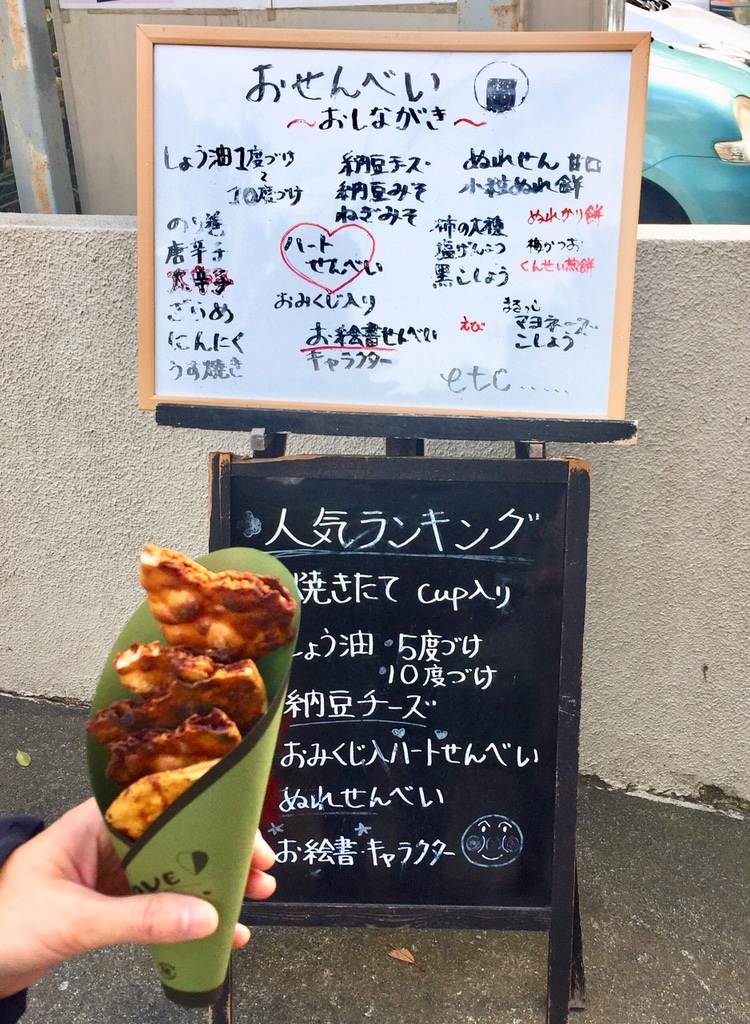 おせんべい
〜おしながき〜
しょう油1度づけ
〜
10度づけ
のり巻
唐辛子
大辛子
ざらめ
にんにく
うす焼き
納豆チーズ
納豆みそ
ねぎみそ
ハート
せんべい
おみくじ入り
お絵書せんべい
キャラクター
ぬれせん 甘口
小粒ぬれ餅
柿の大種
塩げんこつ
黒こしょう
ぬれかり餅
梅かつお
くんせい煎餅
えび
まるっこ
マヨネーズ
こしょう
etc.....
人気ランキング
焼きたて cup入り
しょう油・5度づけ
・10度づけ
納豆チーズ
おみくじ入ハートせんべい
ぬれせんべい
お絵書・キャラクター